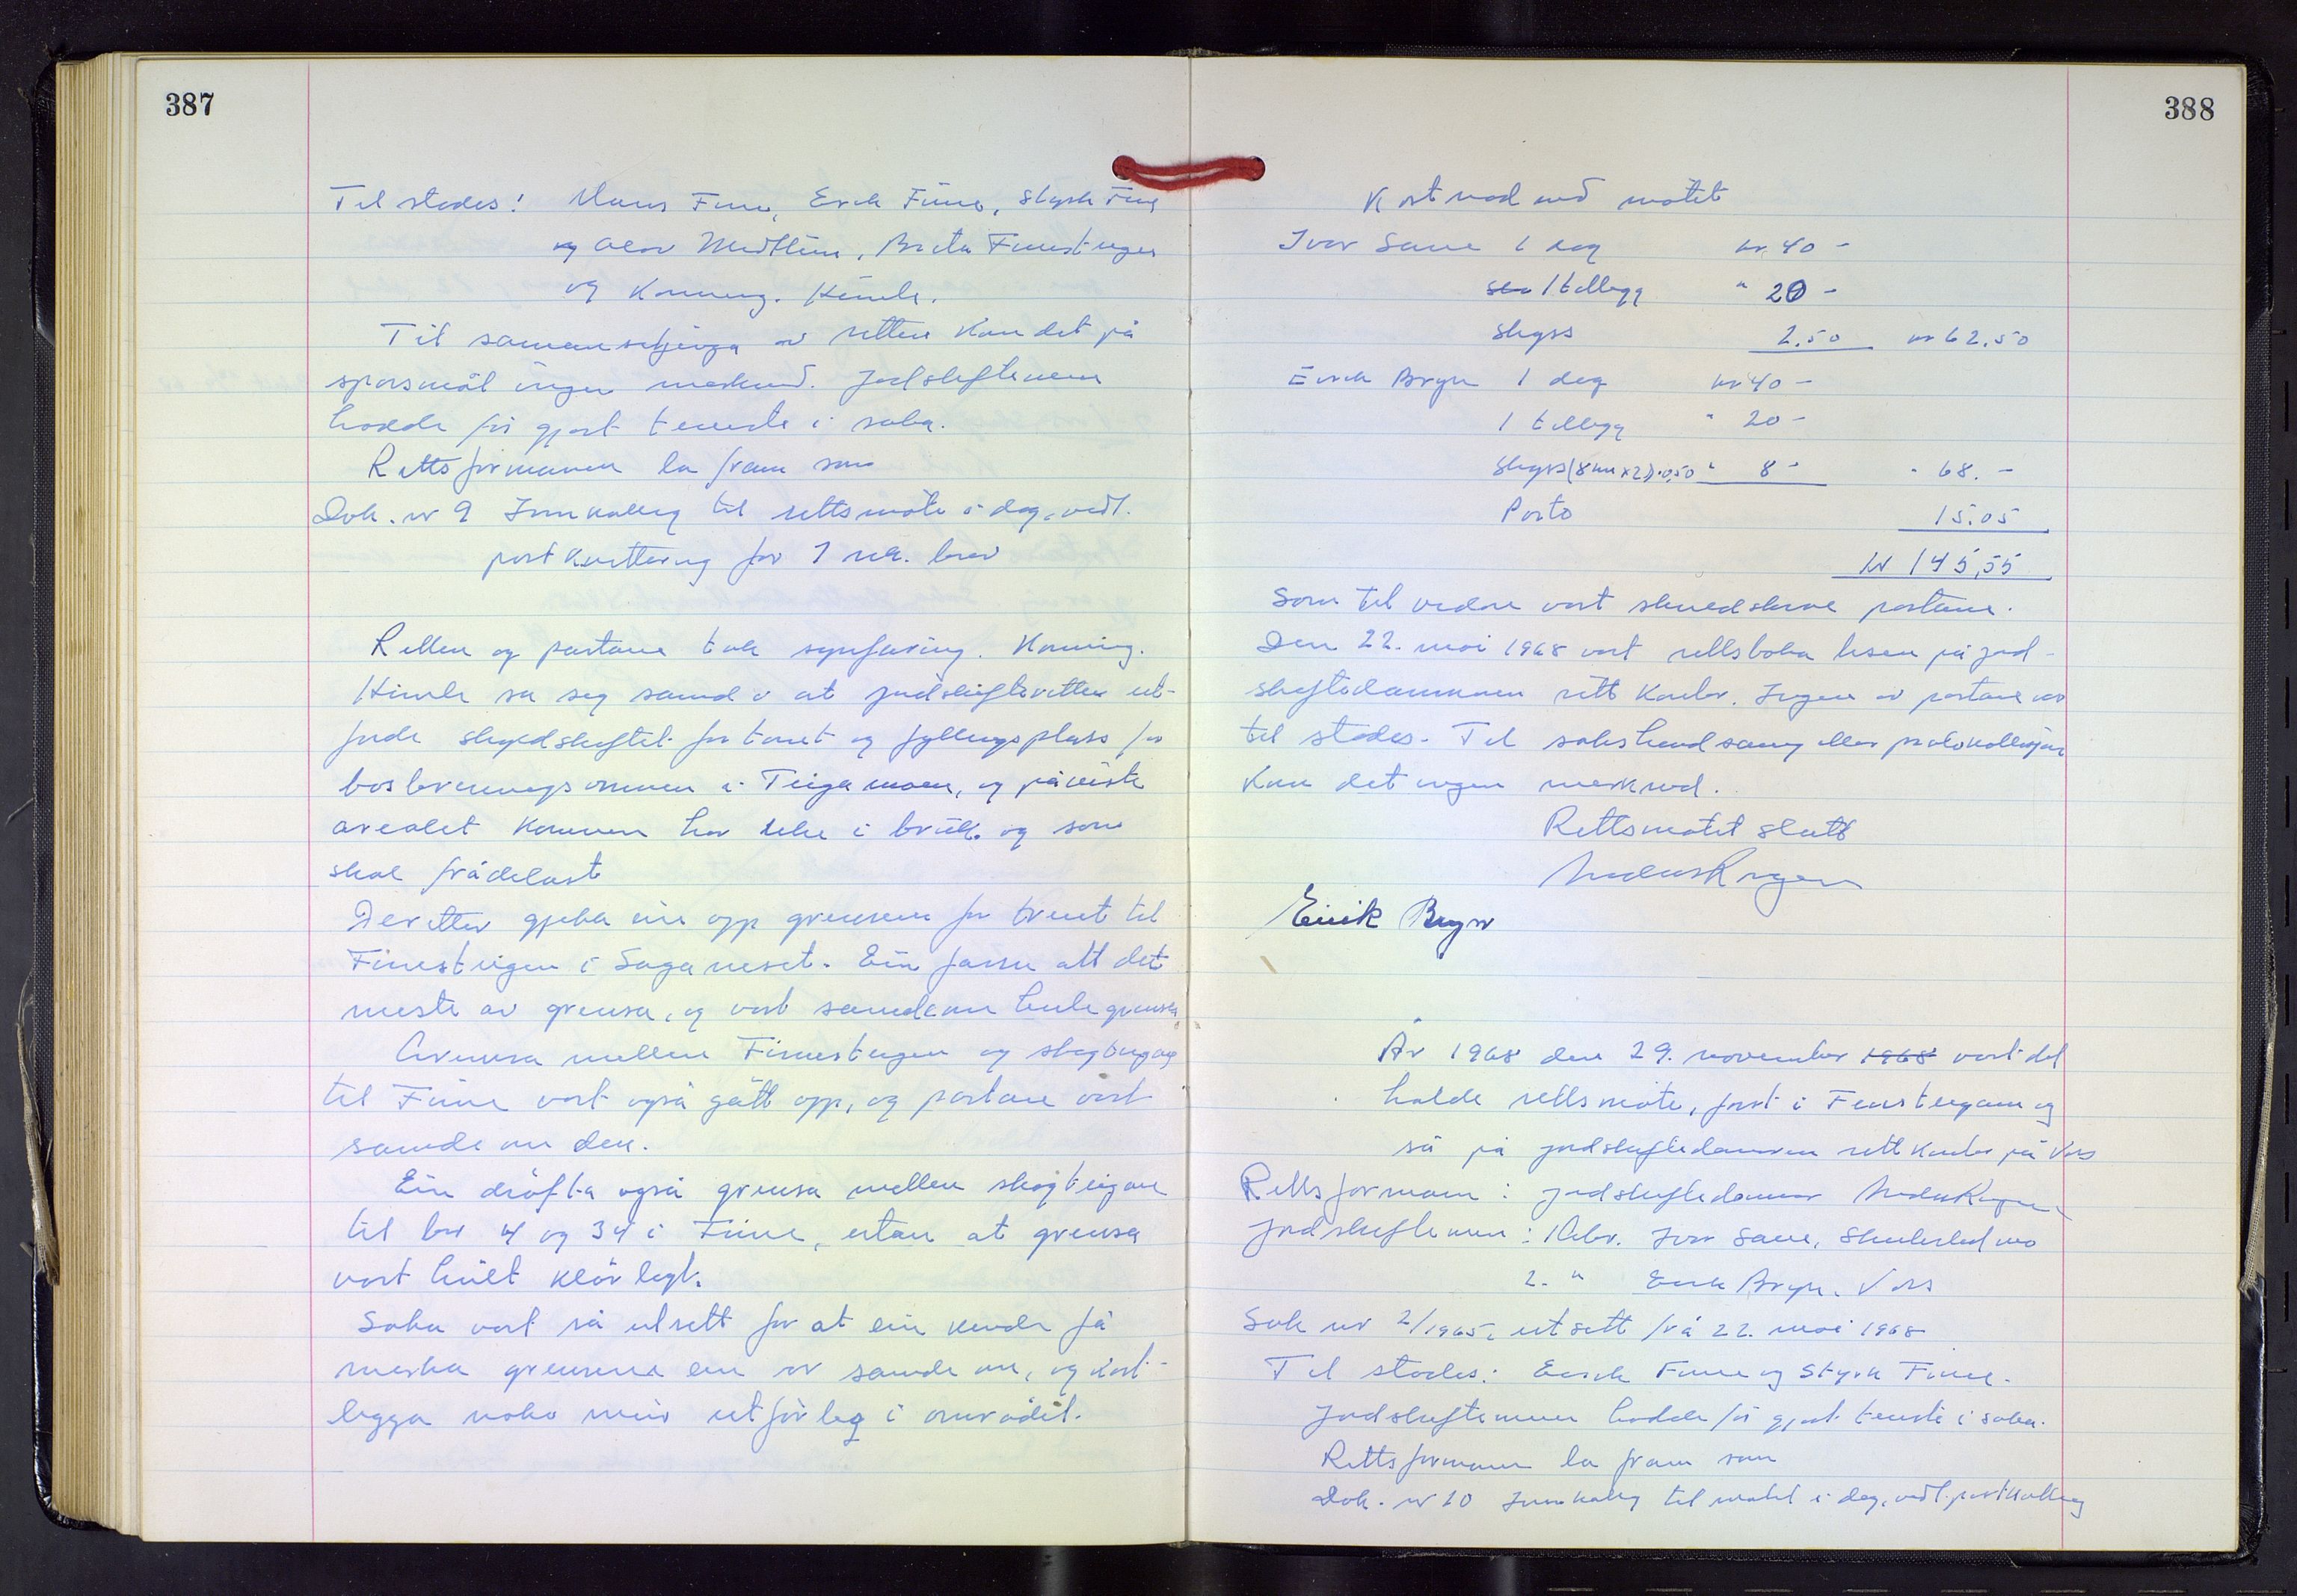 387
Til stades: Mons Finne, Eirik Finne, Styrk Finne
og Olav Midttun, Brita Finnesteigen
og Komming. Himle.
Til samansetjinga av retten kom det på
spørsmål ingen merknad. Jordskiftemenn
hadde før gjort teneste i saka.
Rettsformannen la fram som
Dok. nr 9 Innkalling til rettsmøte i dag, vedl.
postkvittering for 7 rek. brev
Retten og partane tok synfaring. Komming.
Himle sa seg samd i at jordskifteretten ut-
førde skyldskiftet for tomt og fyllingsplass for
bosbrenningsomnen i Teigamoen, og påviste
arealet kommunen har teke i bruk og som
skal frådelast
Deretter gjekk ein opp grensene for bruet til
Finnesteigen i Saganeset. Ein fann att det
meste av grensa, og vart samde om heile grensa
Grensa mellom Finnesteigen og skogteigane
til Finne vart også gått opp, og partane vart
samde om den.
Ein drøfta også grensa mellom skogteigane
til bnr 4 og 34 i Finne, utan at grensa
vart heilt klårlagt.
Saka vart så utsett for at ein kunde få
merka grensene ein er samde om, og kart-
legga noko meir utførleg i området.
388
Kostnad med møtet
Ivar Saue 1 dag kr 40 -
1 tillegg " 20 -
Skyss 2.50 kr 62.50
Eirik Bryn 1 dag kr 40 -
1 tillegg " 20 -
Skyss (8 km x 2) · 0,50 " 8 - " 68. -
Porto 15.05
kr 145,55
som til vidare vart skuldskrive partane.
Den 22. mai 1968 vart rettsboka lesen på jord-
skiftedommaren sitt kontor. Ingen av partane var
til stades. Til sakshandsaming eller protokollasjon
kom det ingen merknad.
Rettsmøtet slutt
Eirik Bryn
År 1968 den 29. november 1968 vart det
halde rettsmøte, først i Finnesteigane og
så på jordskiftedommaren sitt kontor på Voss
Rettsformann: jordskiftedommar
Jordskiftemenn: 1. Ivar Saue,
2. " Eirik Bryn, Voss
Sak nr 2/1965, utsett frå 22. mai 1968
Til stades: Eirik Finne og Styrk Finne.
Jordskiftemenn hadde før gjort teneste i saka.
Rettsformann la fram som
Dok. nr 10 Innkalling til møtet i dag, vedl. postkvittering